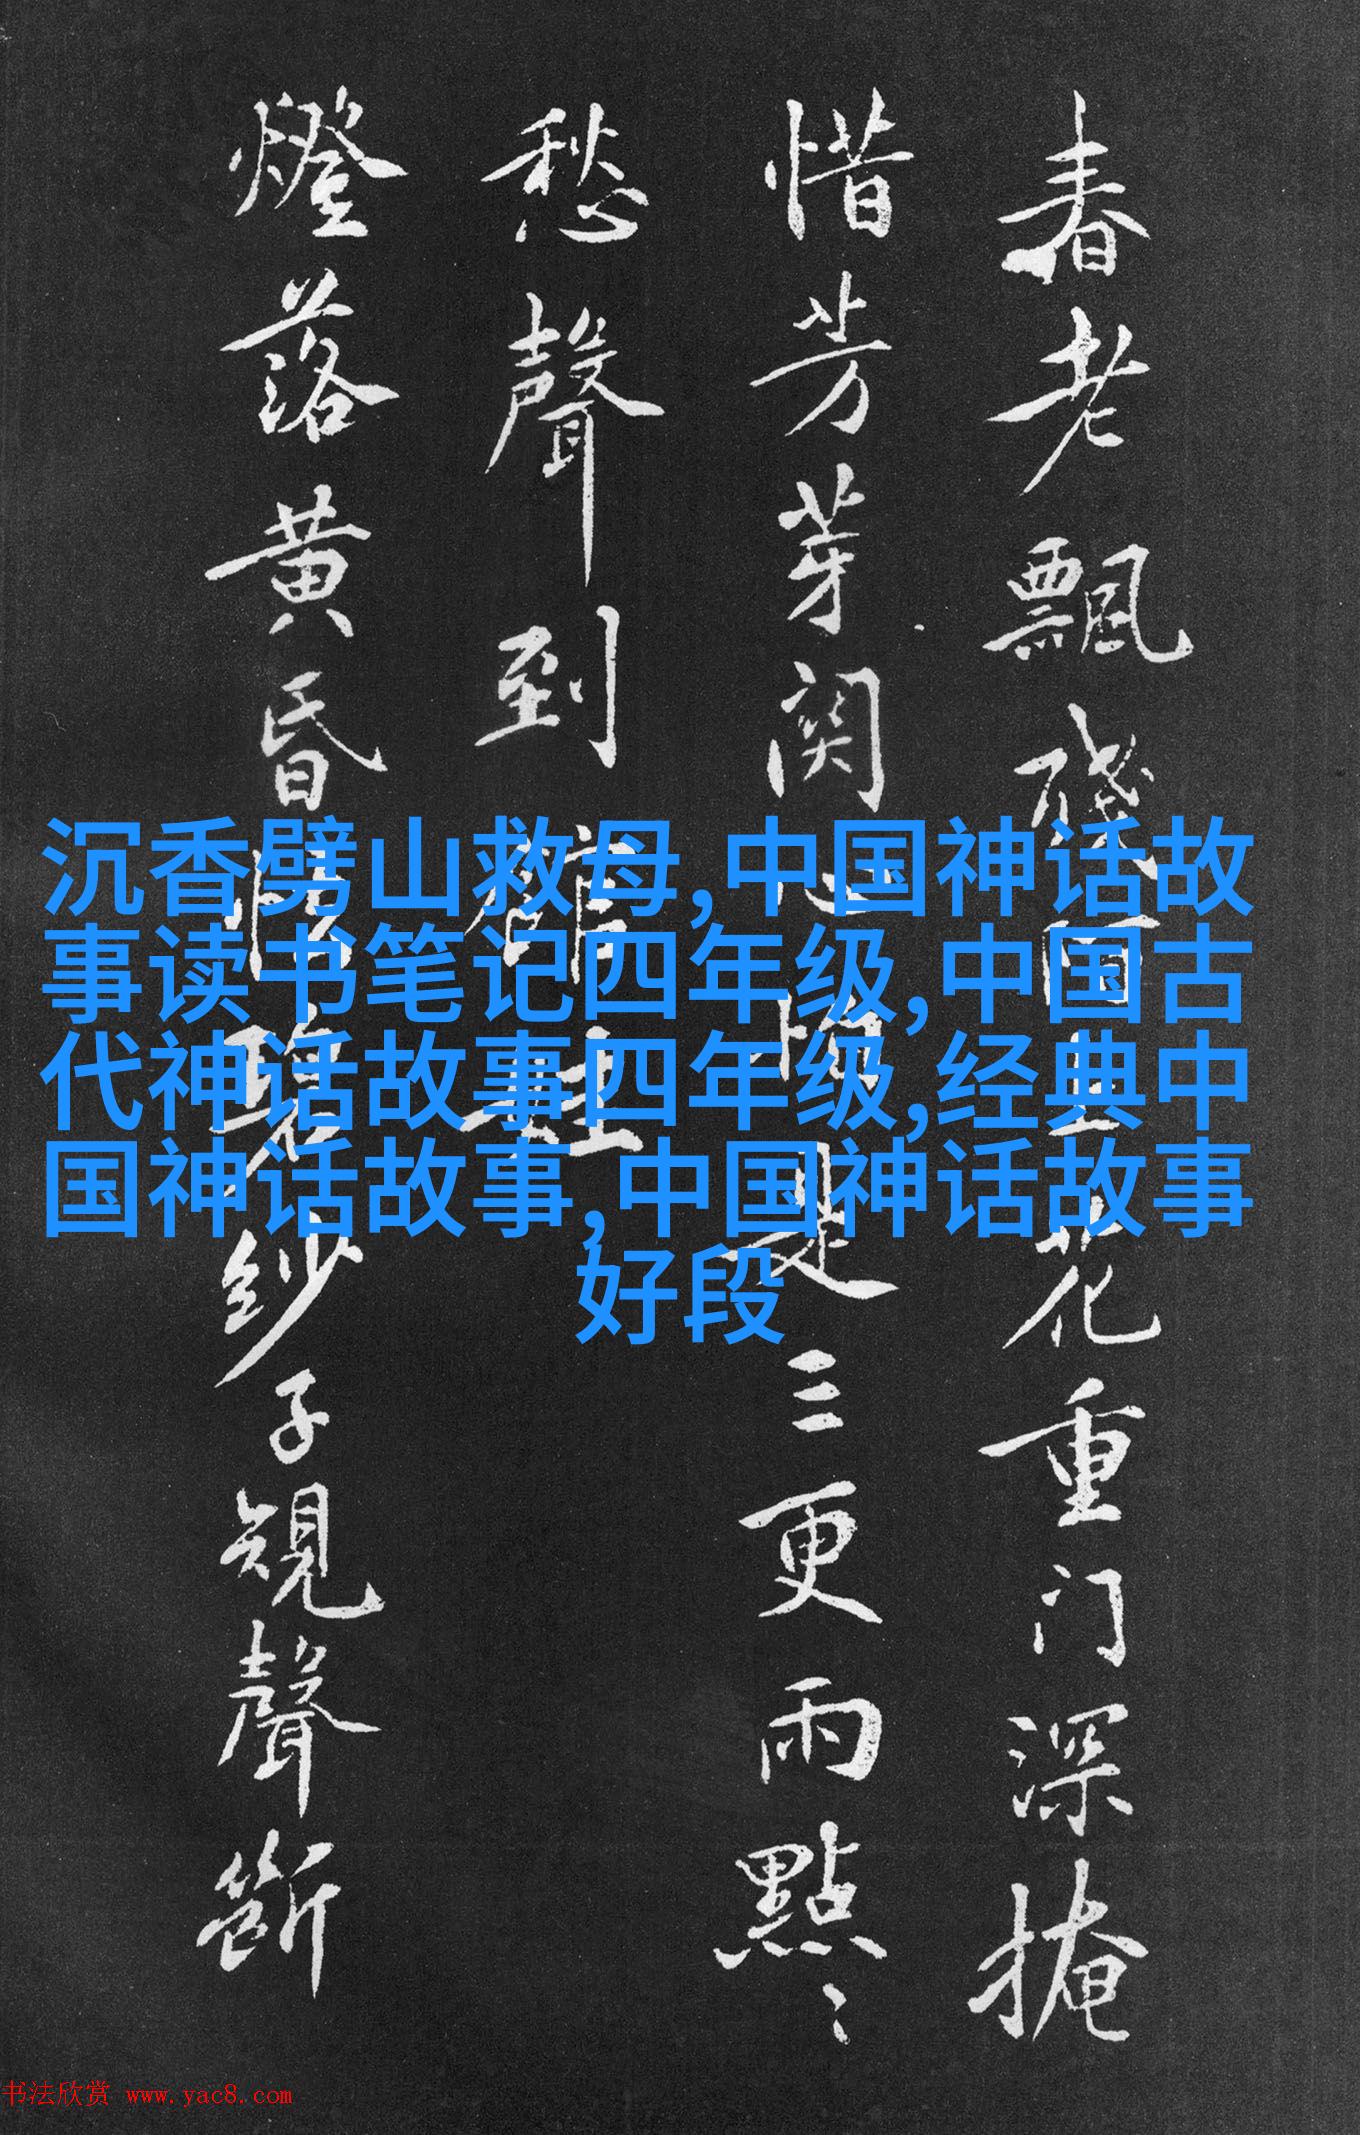 春老飄殘花重门深掩
惜芳芽関是三更雨點、、
愁聲到館娃
燈落黄昏恨碧紗子規聲斷
沉香劈山救母,中国神话故
事读书笔记四年级,中国古
代神话故事四年级,经典中
国神话故事,中国神话故事
好段
书法欣赏 www.yac8.com